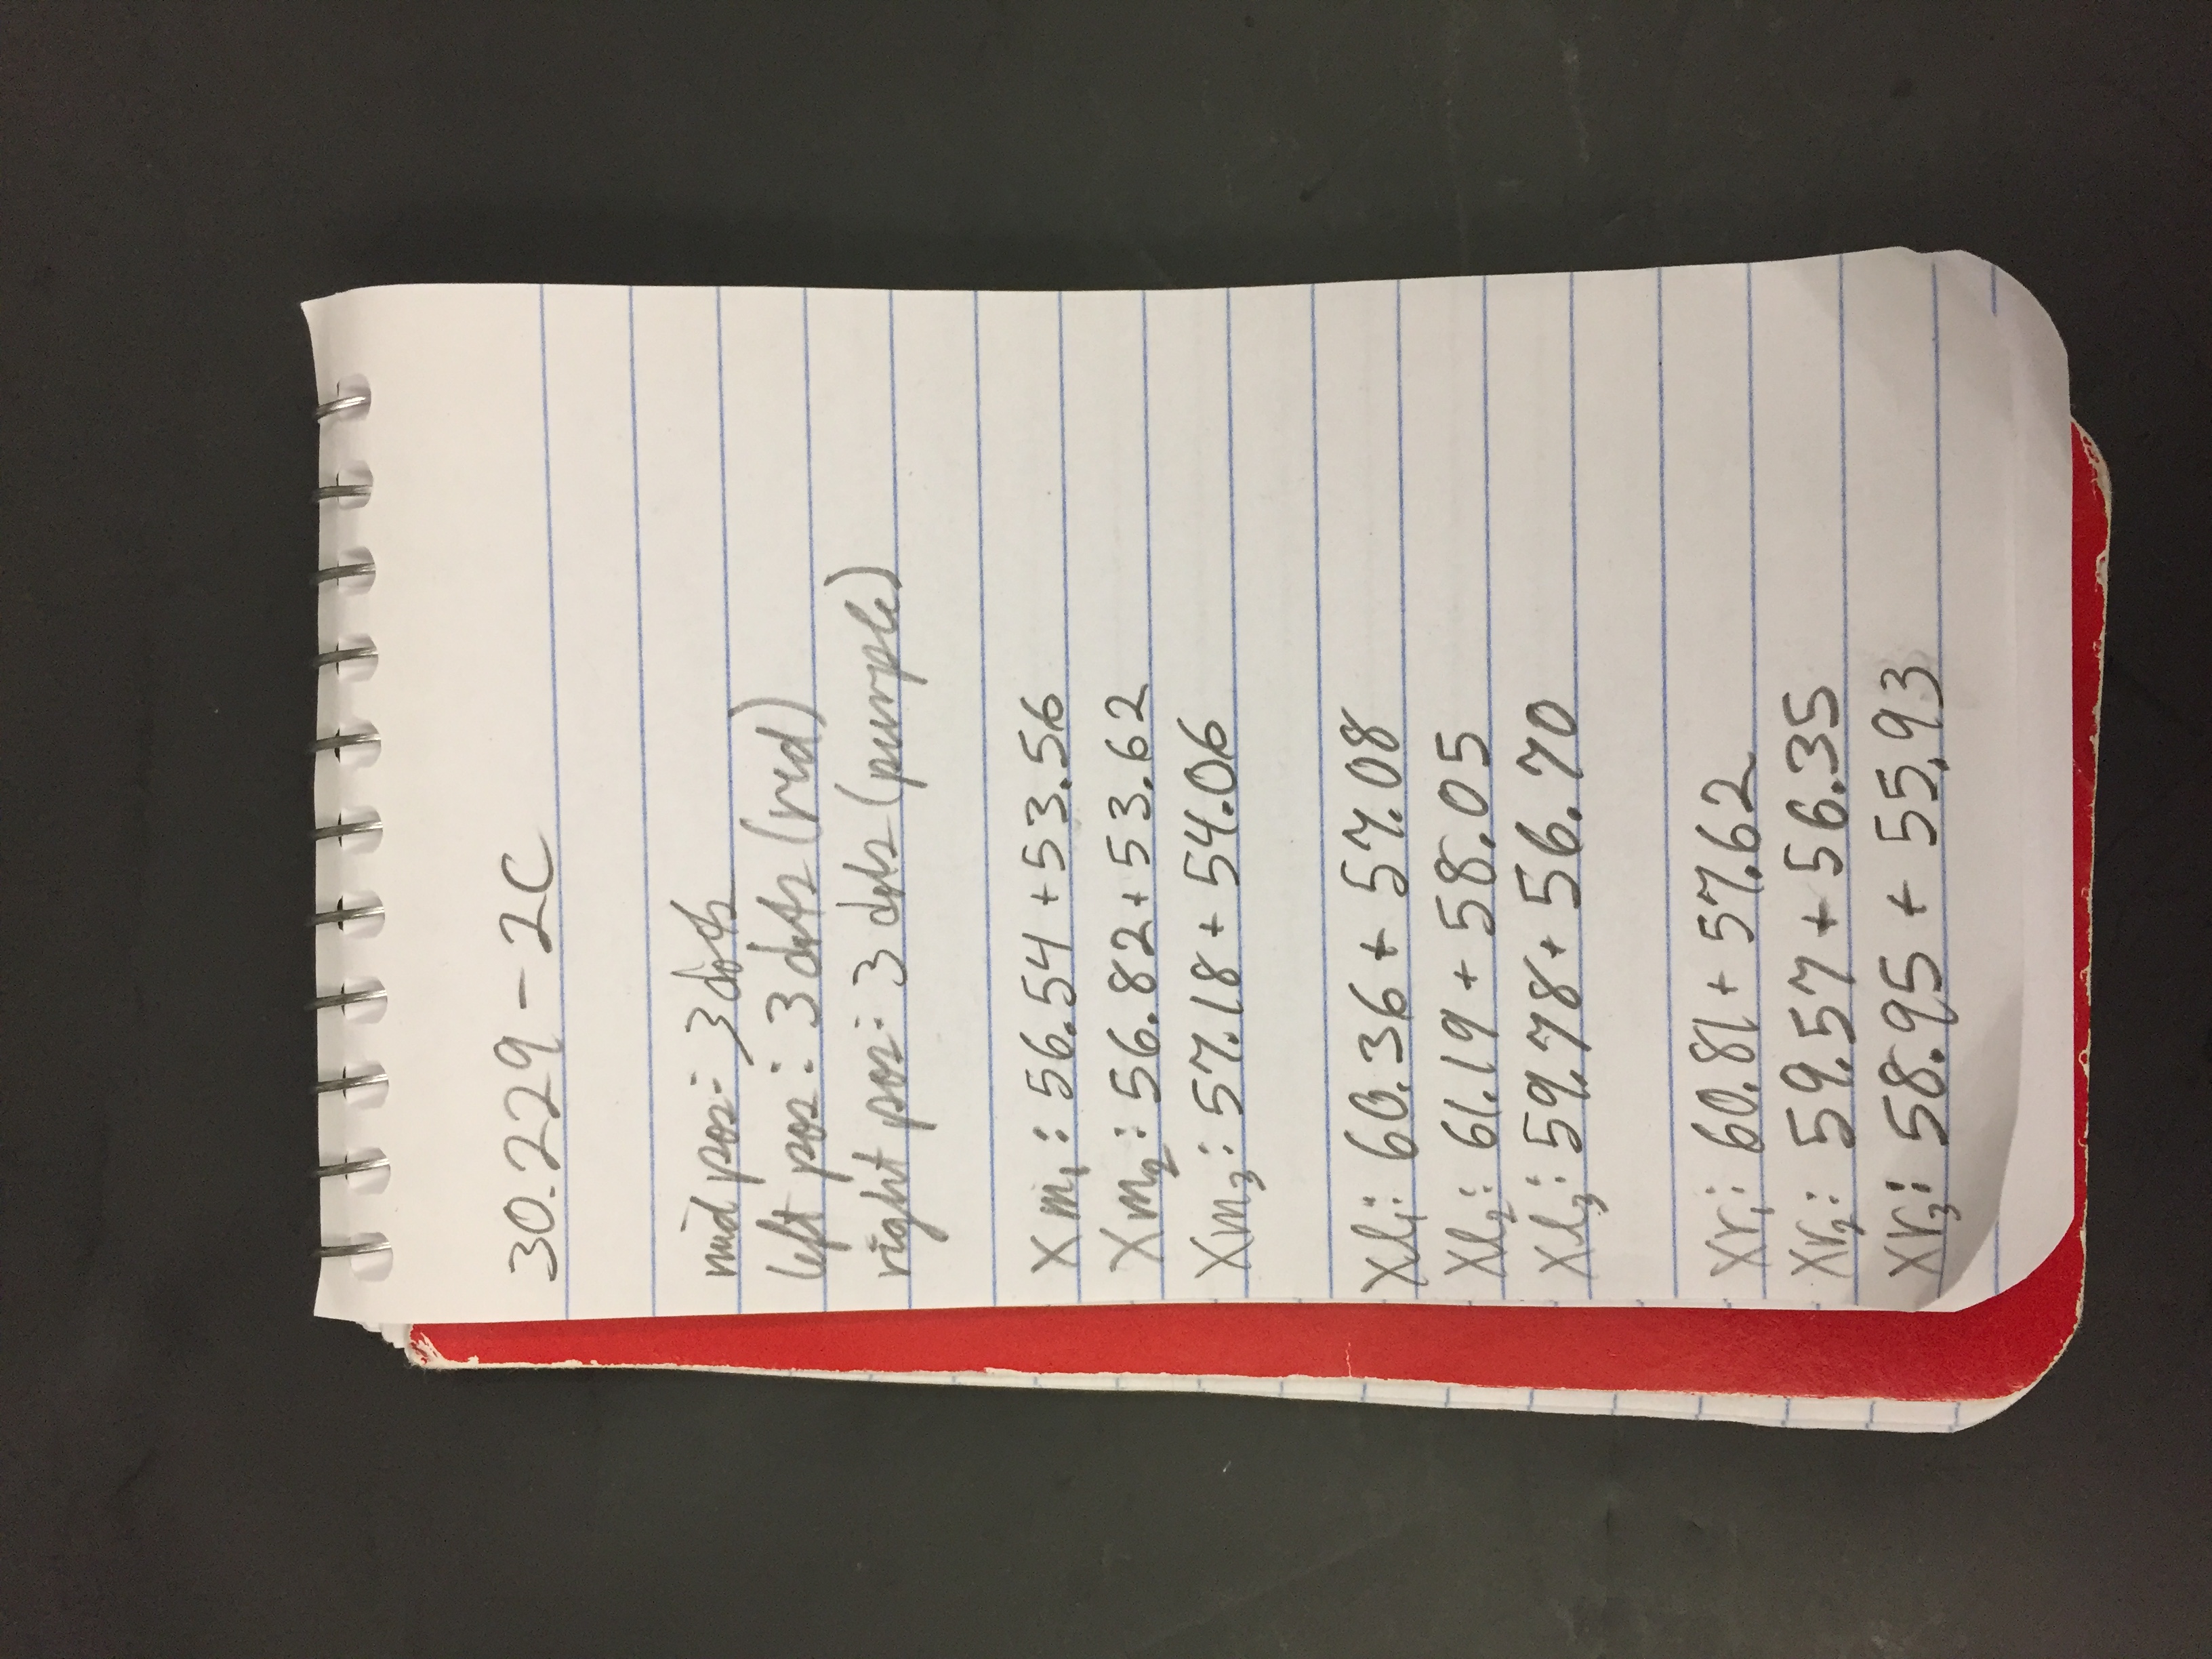 30.229-2C
mid pos: 3 dots
left pos: 3 dots (red)
right pos: 3 dots (purple)
Xm₁: 56.54 + 53.56
Xm₂: 56.82 + 53.62
Xm₃: 57.18 + 54.06
Xl₁: 60.36 + 57.08
Xl₂: 61.19 + 58.05
Xl₃: 59.78 + 56.70
Xr₁: 60.81 + 57.62
Xr₂: 59.57 + 56.35
Xr₃: 58.95 + 55.93